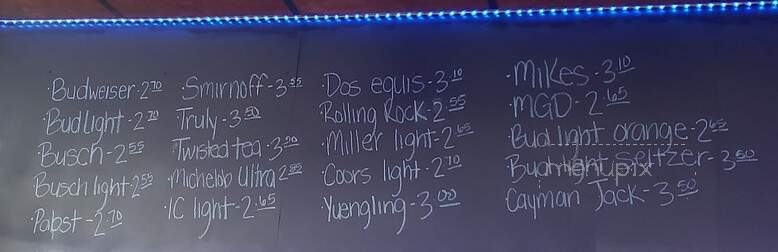 ·Budweiser-2 70
·Bud light-2 70
·Busch-2 55
·Busch light-2 55
·Pabst-2.70
·Smirnoff-3 55
·Truly-3 50
·Twisted tea-3
·Michelob Ultra 2
·IC light-2.65
·Dos equis-3.10
·Rolling Rock-2 55
·Miller light-2 65
·Coors light-2.70
·Yuengling-3.00
·Mikes-3 10
·MGD-2.65
·Bud light orange-2 65
·Bud light Seltzer-3 50
·Cayman Jack-3 50
menupix